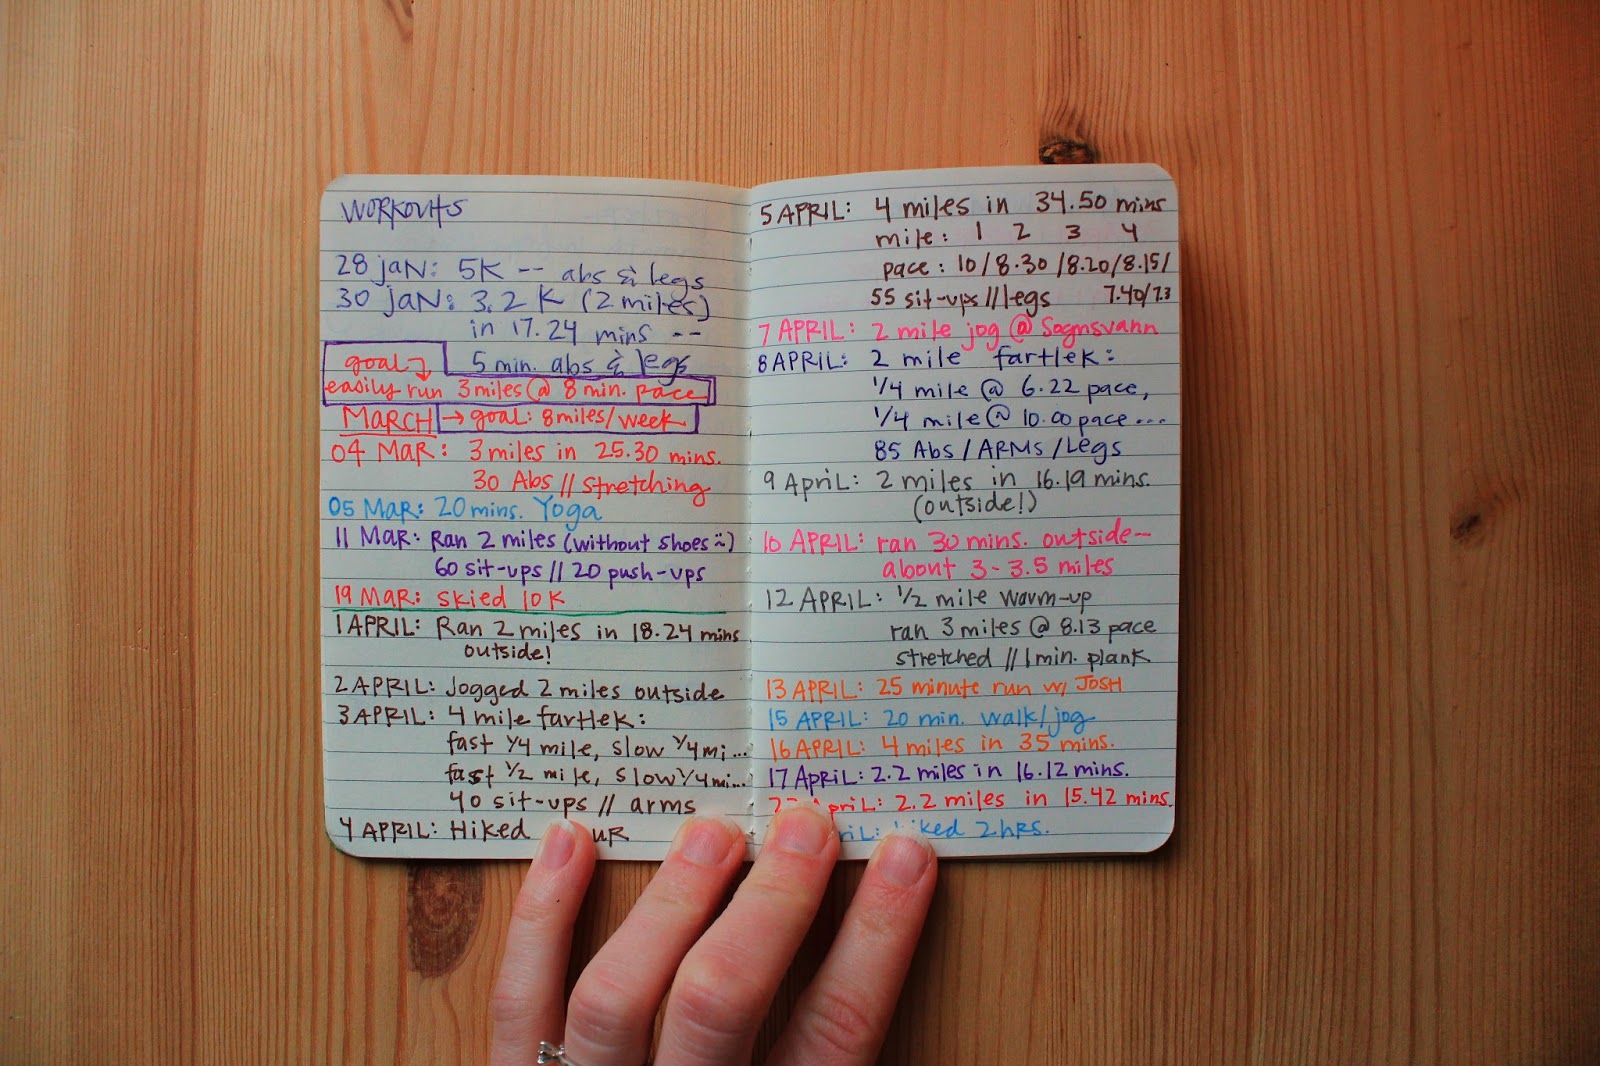 WORKOUTS
28 JAN: 5K -- abs & legs
30 JAN: 3.2 K (2 miles)
in 17.24 mins --
5 min. abs & legs
goal
easily run 3 miles @ 8 min. pace
MARCH → goal: 8 miles/week
04 MAR: 3 miles in 25.30 mins.
30 Abs // stretching
05 MAR: 20 mins. Yoga
11 MAR: Ran 2 miles (without shoes :)
60 sit-ups // 20 push-ups
19 MAR: skied 10K
1 APRIL: Ran 2 miles in 18.24 mins
outside!
2 APRIL: Jogged 2 miles outside
3 APRIL: 4 mile fartlek:
fast 1/4 mile, slow 1/4 mi...
fast 1/2 mile, slow 1/4 mi...
40 sit-ups // arms
4 APRIL: Hiked
5 APRIL: 4 miles in 34.50 mins
mile: 1 2 3 4
pace: 10/8.30/8.20/8.15/
55 sit-ups // legs 7.40/7.3
7 APRIL: 2 mile jog @ Sognsvann
8 APRIL: 2 mile fartlek:
1/4 mile @ 6.22 pace,
1/4 mile @ 10.00 pace...
85 Abs / ARMS / Legs
9 April: 2 miles in 16.19 mins.
(outside!)
10 APRIL: ran 30 mins. outside—
about 3-3.5 miles
12 APRIL: 1/2 mile warm-up
ran 3 miles @ 8.13 pace
stretched // 1 min. plank
13 APRIL: 25 minute run w/ JOSH
15 APRIL: 20 min. walk/jog
16 APRIL: 4 miles in 35 mins.
17 April: 2.2 miles in 16.12 mins.
April: 2.2 miles in 15.42 mins.
hiked 2 hrs.